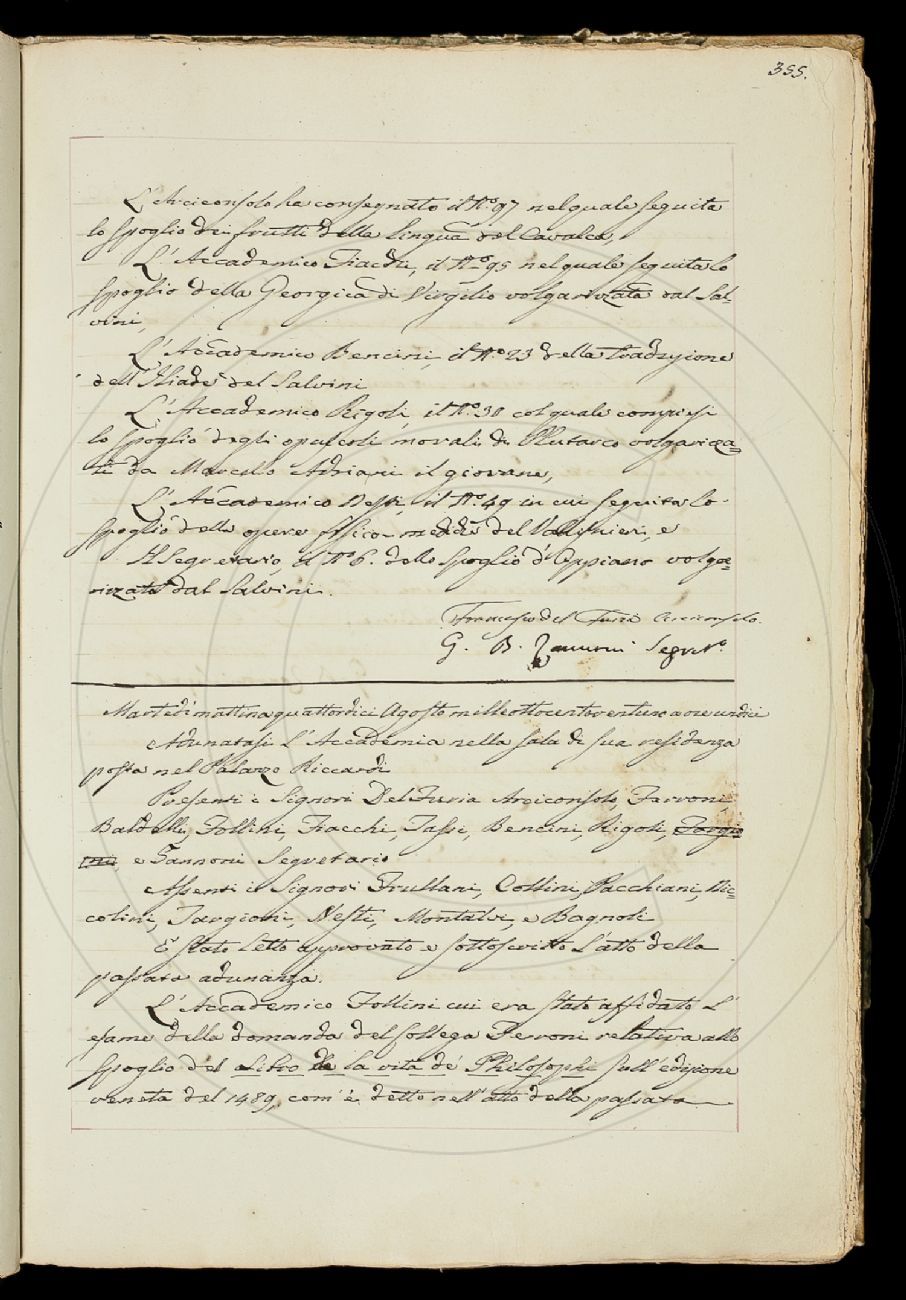 355.
L'Arciconsolo ha consegnato il N.o 97 nel quale seguita
lo spoglio dei frutti della lingua del Cavalca,
L'Accademico Fiacchi, il N.o 95 nel quale seguita lo
spoglio della Georgica di Virgilio volgarizzata dal Sal-
vini,
L'Accademico Bencini, il N.o 23 della traduzione
dell'Iliade del Salvini
L'Accademico Rigoli, il N.o 30 col quale compiesi
lo spoglio degli opuscoli morali di Plutarco volgarizza-
ti da Marcello Adriani il giovane,
L'Accademico Nesti, il N.o 49 in cui seguita lo
spoglio delle opere fisico-mediche del Vallisnieri, e
Il Segretario, il N.o 6. dello spoglio d'Oppiano volga-
rizzato dal Salvini.
Francesco del Furia Arciconsolo.
G. B. Zannoni Segret.o
Martedì mattina quattordici Agosto milleottocentoventuno a ore undici
Adunatasi l'Accademia nella sala di sua residenza
posta nel Palazzo Riccardi
Presenti i Signori Del Furia Arciconsolo, Ferroni,
Baldelli, Follini, Fiacchi, Sassi, Bencini, Rigoli, Targio
ni, e Zannoni Segretario
Assenti i Signori Frullani, Collini, Pacchiani, Nic-
colini, Targioni, Nesti, Montalvi, e Bagnoli
È stato letto approvato e sottoscritto l'atto della
passata adunanza.
L'Accademico Follini cui era stato affidato l'
esame della domanda del collega Ferroni relativa allo
spoglio del Libro de la vita de' Philosophi sull'edizione
veneta del 1489, com'è detto nell'atto della passata